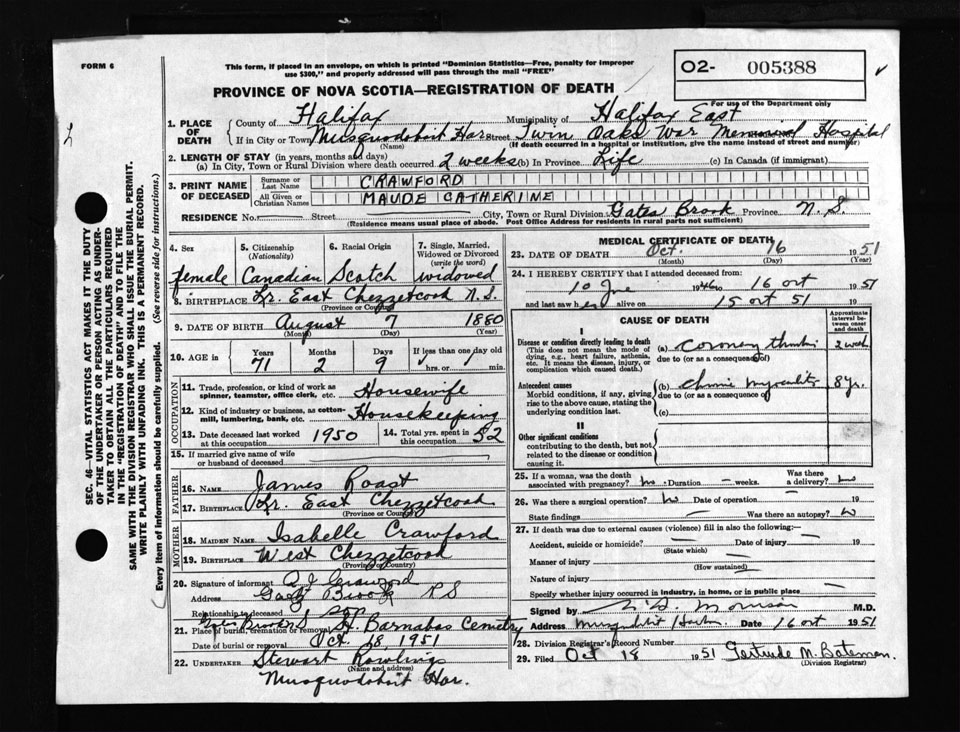 FORM 6
This form, if placed in an envelope, on which is printed "Dominion Statistics—Free, penalty for improper
use $300," and properly addressed will pass through the mail "FREE"
O2- 005388
For use of the Department only
PROVINCE OF NOVA SCOTIA—REGISTRATION OF DEATH
1. PLACE OF DEATH
County of Halifax Municipality of Halifax East
If in City or Town Musquodoboit Har Street Twin Oaks War Memorial Hospital
(Name) (If death occurred in a hospital or institution, give the name instead of street and number)
2. LENGTH OF STAY (in years, months and days)
(a) In City, Town or Rural Division where death occurred 2 weeks (b) In Province Life (c) In Canada (if immigrant)
3. PRINT NAME OF DECEASED
Surname or Last Name CRAWFORD
All Given or Christian Names MAUDE CATHERINE
RESIDENCE No. Street City, Town or Rural Division Gates Brook Province N. S.
(Residence means usual place of abode. Post Office Address for residents in rural parts not sufficient)
4. Sex 5. Citizenship (Nationality) 6. Racial Origin 7. Single, Married, Widowed or Divorced (write the word)
female Canadian Scotch widowed
8. BIRTHPLACE Lr. East Chezzetcook N.S.
(Province or Country)
9. DATE OF BIRTH August 7 1880
(Month) (Day) (Year)
10. AGE in Years Months Days If less than one day old
71 2 9 hrs. or min.
OCCUPATION
11. Trade, profession, or kind of work as spinner, teamster, office clerk, etc. Housewife
12. Kind of industry or business, as cotton-mill, lumbering, bank, etc. Housekeeping
13. Date deceased last worked at this occupation 1950 14. Total yrs. spent in this occupation 52
15. If married give name of wife or husband of deceased
FATHER
16. NAME James Roast
17. BIRTHPLACE Lr. East Chezzetcook
(Province or Country)
MOTHER
18. MAIDEN NAME Isabelle Crawford
19. BIRTHPLACE West Chezzetcook
(Province or Country)
20. Signature of informant Crawford
Address Brook
Relationship to deceased son
21. Place of burial, cremation or removal Gates Brook St. Barnabas Cemetry
Date of burial or removal Oct. 18, 1951
22. UNDERTAKER Stewart Rowlings
(Name and address)
Musquodoboit Har.
MEDICAL CERTIFICATE OF DEATH
23. DATE OF DEATH Oct. 16 1951
(Month) (Day)
24. I HEREBY CERTIFY that I attended deceased from
10 1946 to 16 oct 1951
and last saw her alive on 15 oct 51 19
CAUSE OF DEATH
Approximate interval between onset and death
I
Disease or condition directly leading to death
(This does not mean the mode of dying, e.g., heart failure, asthenia, etc. It means the disease, injury, or complication which caused death.)
(a) coronary 2 weeks
due to (or as a consequence of)
Antecedent causes
Morbid conditions, if any, giving rise to the above cause, stating the underlying condition last.
(b) 8 yrs.
due to (or as a consequence of)
(c)
II
Other significant conditions
contributing to the death, but not related to the disease or condition causing it.
25. If a woman, was the death associated with pregnancy? no. Duration — weeks. Was there a delivery? no
26. Was there a surgical operation? no Date of operation — 19
State findings — Was there an autopsy? no
27. If death was due to external causes (violence) fill in also the following:—
Accident, suicide or homicide? — Date of injury — 19
(State which)
Manner of injury —
(How sustained)
Nature of injury
Specify whether injury occurred in industry, in home, or in public place —
Signed by Morrison M.D.
Address Musqudobit Harbor Date 16 oct 1951
28. Division Registrar's Record Number
29. Filed Oct 18 1951 Gertrude M. Bateman.
(Division Registrar)
SEC. 46—VITAL STATISTICS ACT MAKES IT THE DUTY
OF THE UNDERTAKER OR PERSON ACTING AS UNDER-
TAKER TO OBTAIN ALL THE PARTICULARS REQUIRED
IN THE "REGISTRATION OF DEATH" AND TO FILE THE
SAME WITH THE DIVISION REGISTRAR WHO SHALL ISSUE THE BURIAL PERMIT.
WRITE PLAINLY WITH UNFADING INK. THIS IS A PERMANENT RECORD.
Every item of information should be carefully supplied. (See reverse side for instructions.)